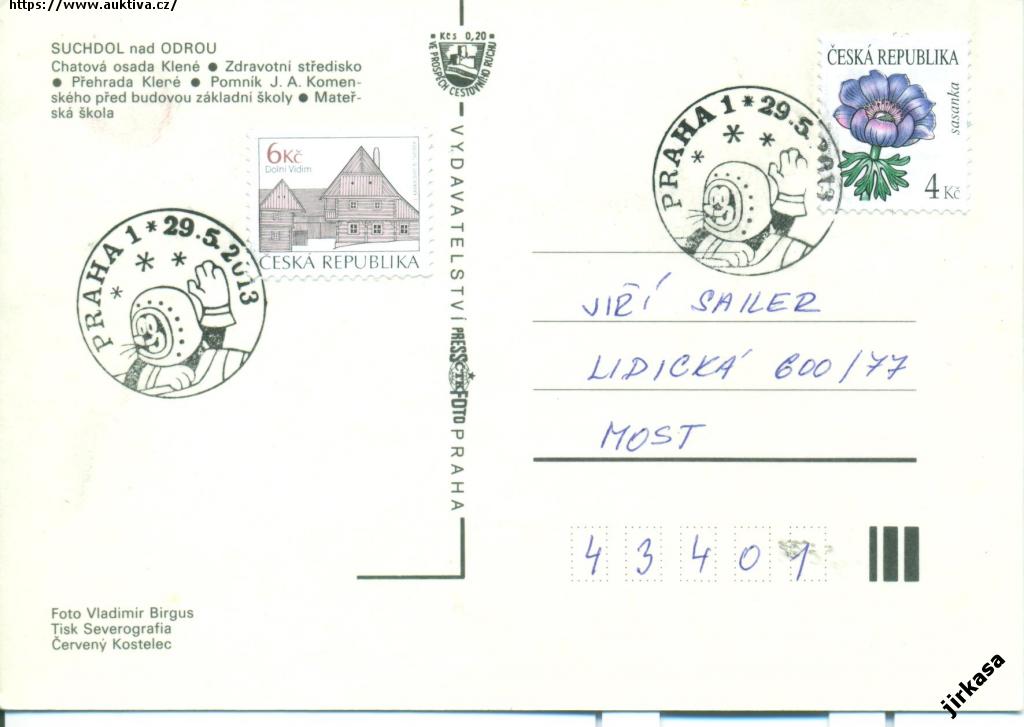 https://www.auktiva.cz/
SUCHDOL nad ODROU
Chatová osada Klené ● Zdravotní středisko
● Přehrada Klené ● Pomník J. A. Komen-
ského před budovou základní školy ● Mateř-
ská škola
Kčs 0,20
VE PROSPĚCH CESTOVNÍHO RUCHU
6Kč
Dolní Vidim
ČESKÁ REPUBLIKA
PRAHA 1 * 29.5.2013
VYDAVATELSTVÍ PRESSFOTO PRAHA
ČTK
ČESKÁ REPUBLIKA
sasanka
4 Kč
PRAHA 1 * 29.5.2013
JIŘÍ SAILER
LIDICKÁ 600/77
MOST
43401
Foto Vladimír Birgus
Tisk Severografia
Červený Kostelec
jirkasa